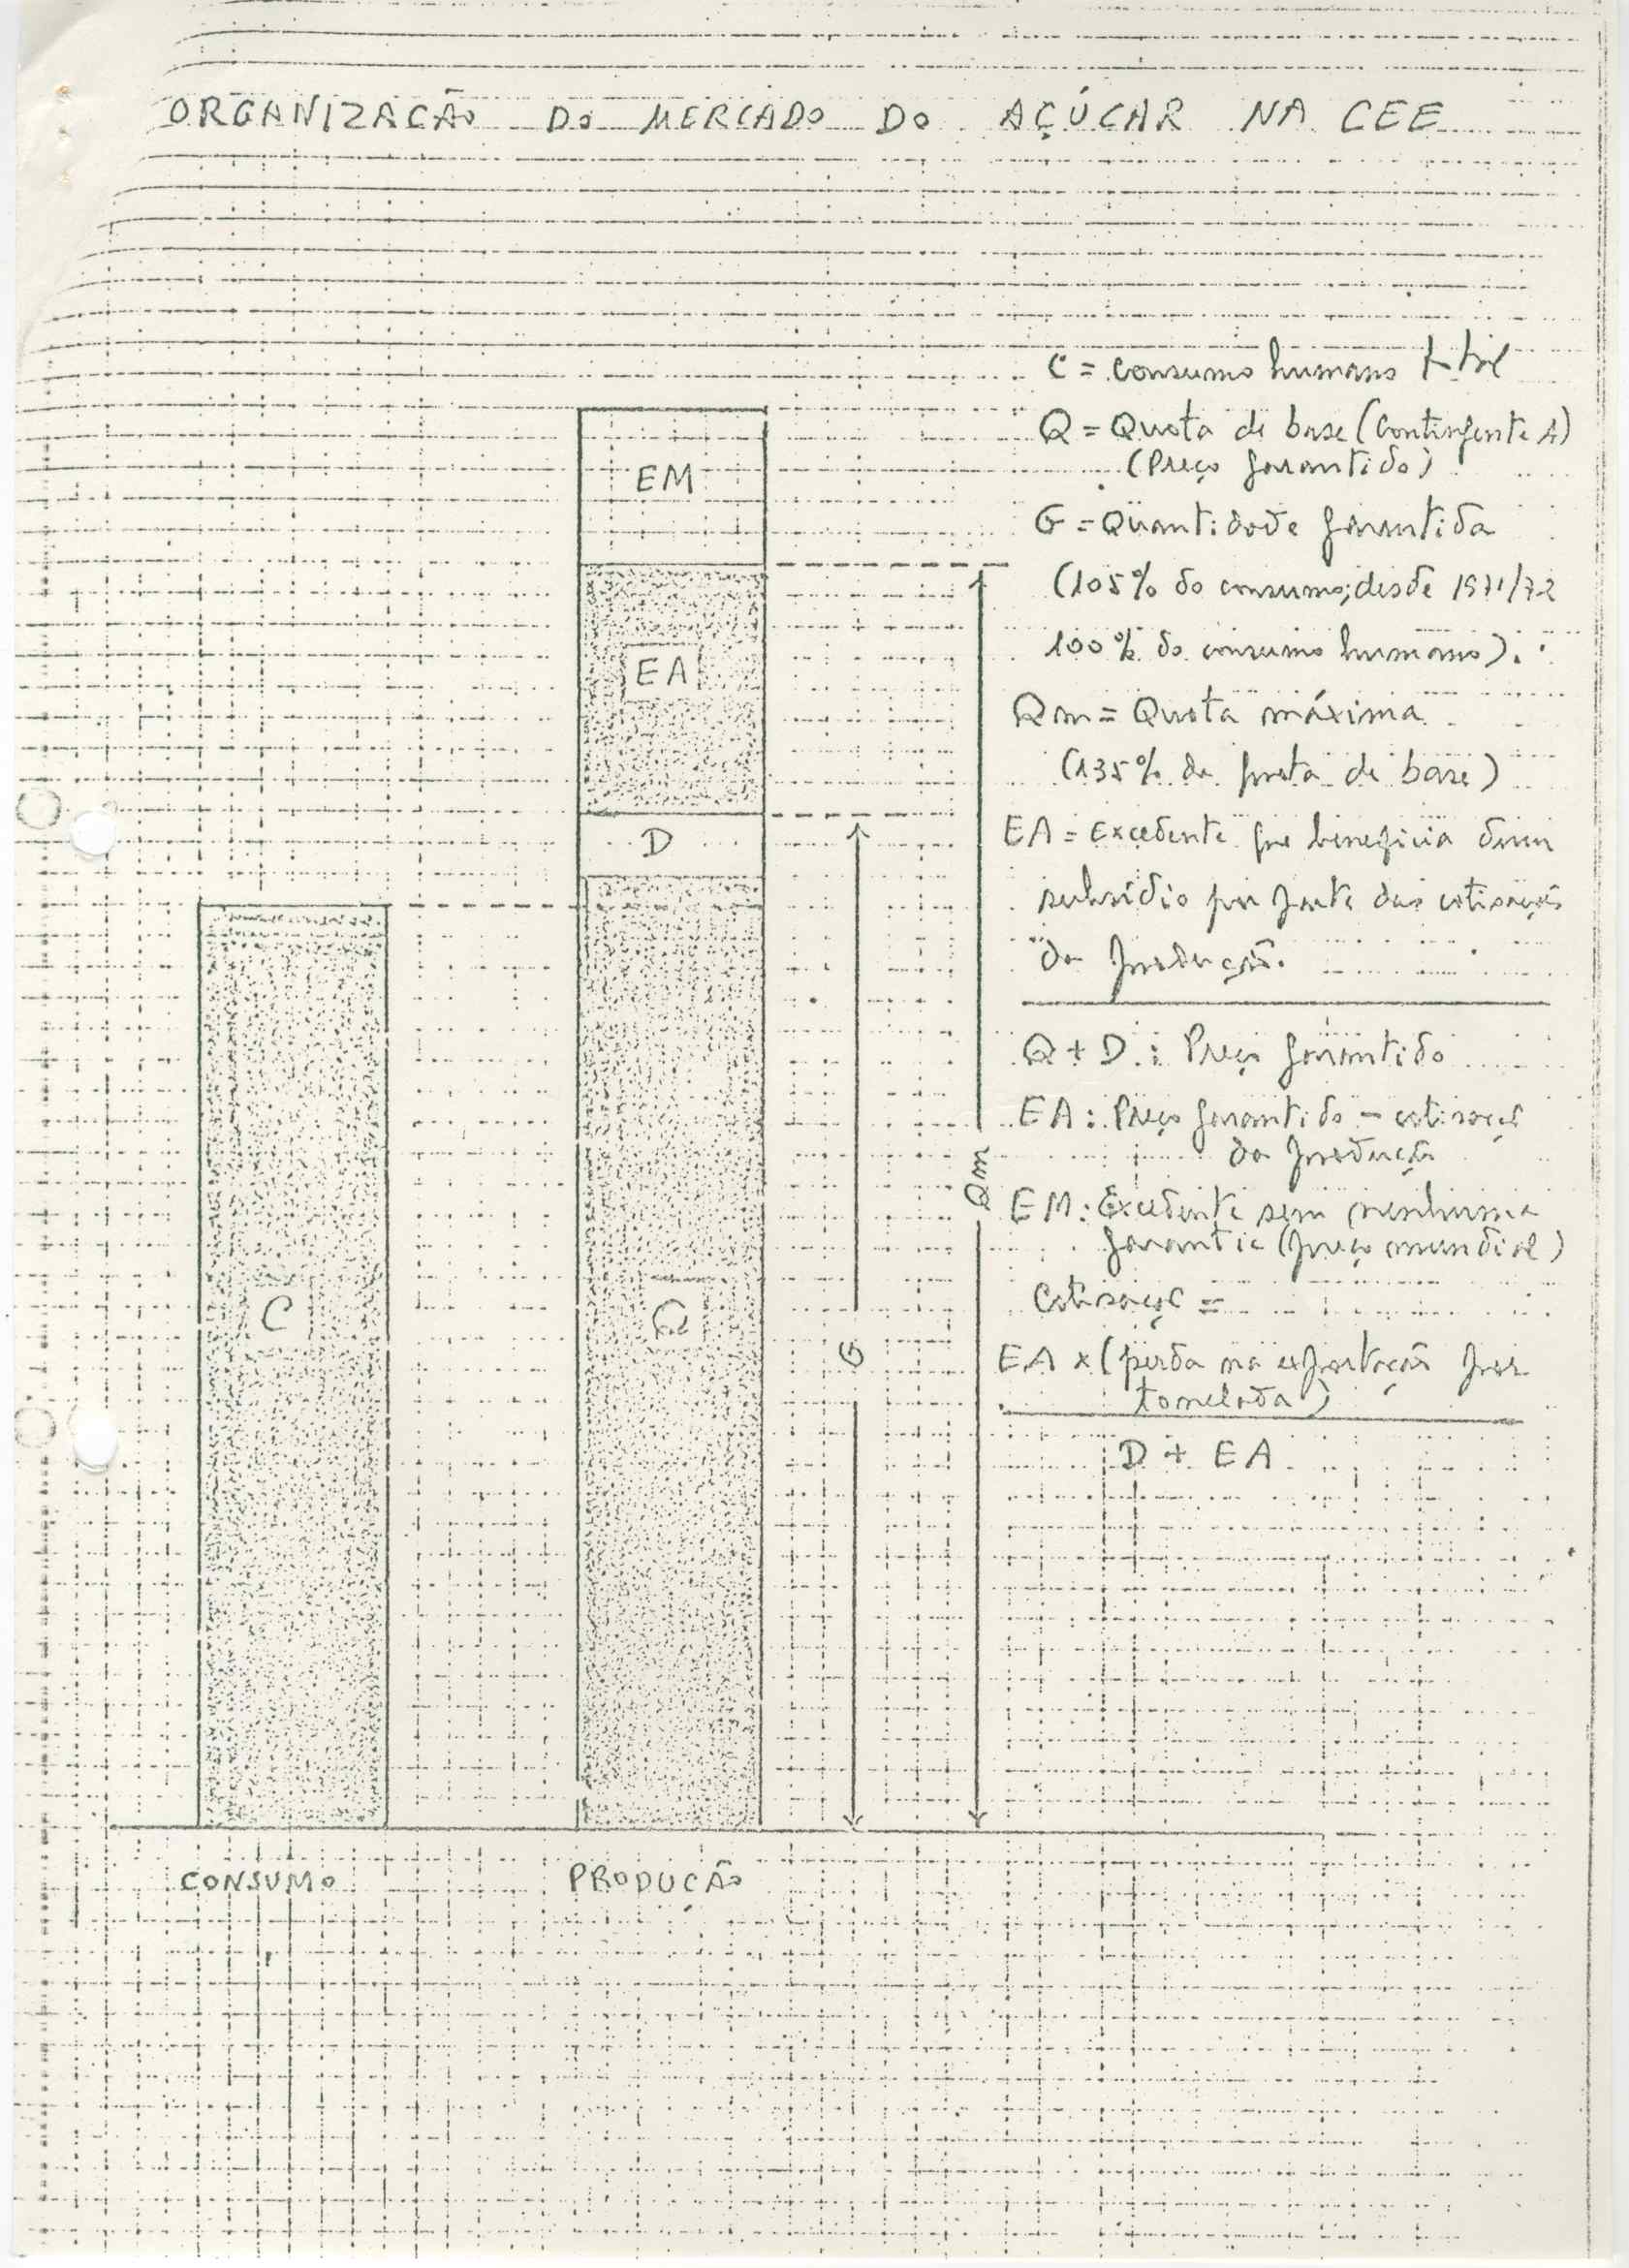 ORGANIZAÇÃO DO MERCADO DO AÇÚCAR NA CEE
C = consumo humano total
Q = Quota de base (Contingente A)
(Preço garantido)
G = Quantidade garantida
(105% do consumo; desde 1971/72
100% do consumo humano).
Qm = Quota máxima
(135% da quota de base)
EA = Excedente que beneficia dum
subsídio por parte das cotisações
da produção.
Q + D : Preço garantido
EA : Preço garantido - cotisação
da produção
EM : Excedente sem nenhuma
garantia (preço mundial)
Cotisação =
EA x (perda na exportação por
tonelada)
D + EA
EM
EA
D
C
Q
G
Qm
CONSUMO
PRODUÇÃO